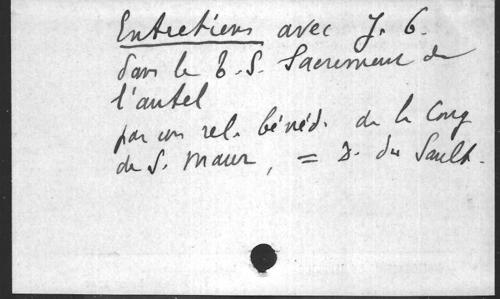 Entretiens avec J. C.
dans le T. S. Sacrement de
l'autel
par un rel. bénéd. de la Cong
de S. Maur, = D. du Sault.